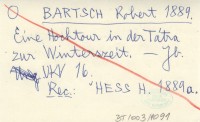 O BARTSCH Robert 1889.
Eine Hochtour in der Tátra
zur Winterszeit. — Jb.
UKV 16.
Rec: HESS H. 1889a.
BT/003/18091